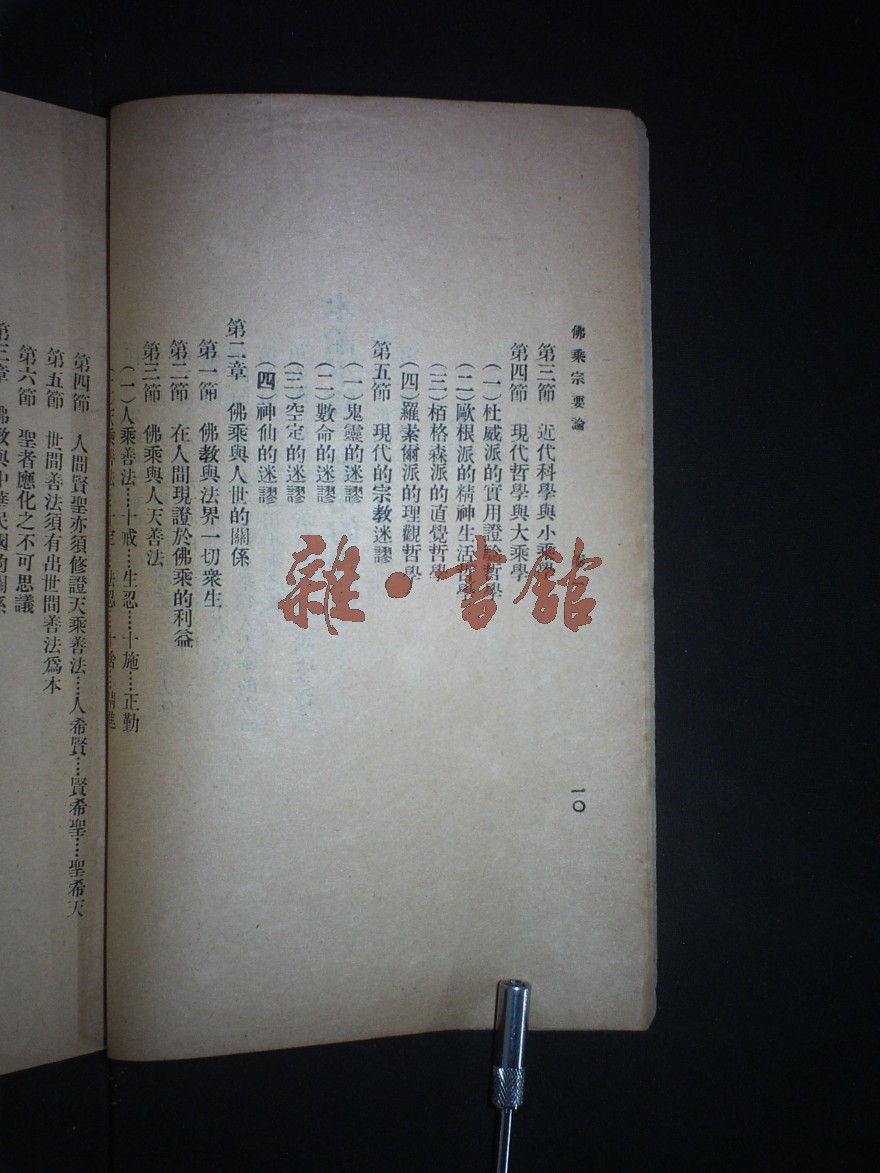 佛乘宗要論
一〇
第三節　近代科學與小乘學
第四節　現代哲學與大乘學
(一)杜威派的實用證驗哲學
(二)歐根派的精神生活哲學
(三)栢格森派的直覺哲學
(四)羅素爾派的理觀哲學
第五節　現代的宗教迷謬
(一)鬼靈的迷謬
(二)數命的迷謬
(三)空定的迷謬
(四)神仙的迷謬
第二章　佛乘與人世的關係
第一節　佛教與法界一切衆生
第二節　在人間現證於佛乘的利益
第三節　佛乘與人天善法
(一)人乘善法……十戒……生忍……十施……正勤
第四節　人間賢聖亦須修證天乘善法……人希賢……賢希聖……聖希天
第五節　世間善法須有出世間善法爲本
第六節　聖者應化之不可思議
第三章　佛教與中華民國的關係
雜·書館